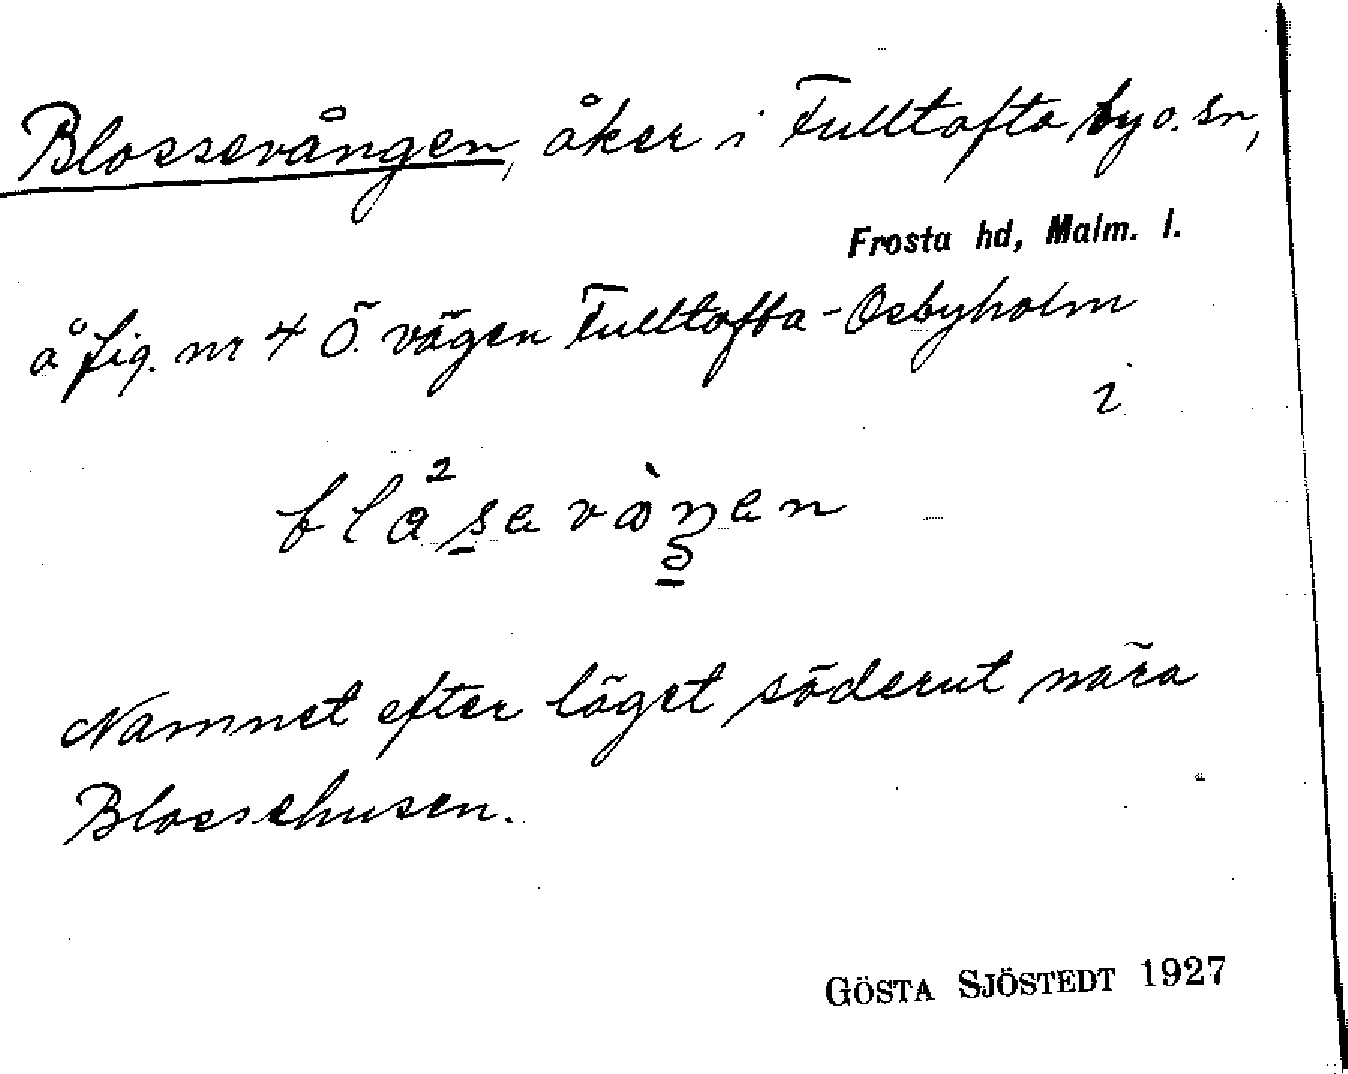 Blossevången, åker i Fulltofta by o. sn,
Frosta hd, Malm. l.
å fig. nr 4 Ö. vägen Fulltofta - Osbyholm
i
Namnet efter läget söderut nära
Blossehusen.
GÖSTA SJÖSTEDT 1927